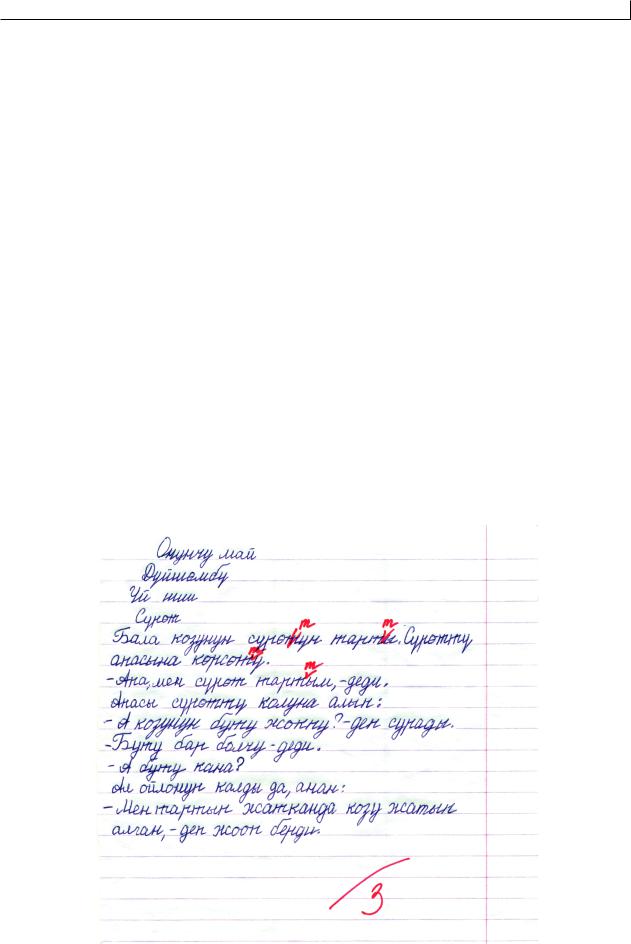 Онунчу май
Дүйшөмбү
Үй иши
Сүрөт
т т
Бала козунун сүрөтүн тарты. Сүрөттү
апасына көрсөтү. т
т
- Апа, мен сүрөт тартым, - деди.
Апасы сүрөттү колуна алып:
- А козунун буту жокпу? - деп сурады.
- Буту бар болчу - деди.
- А буту кана?
Ал ойлонуп калды да, анан:
- Мен тартып жатканда козу жатып
алган, - деп жооп берди.
3